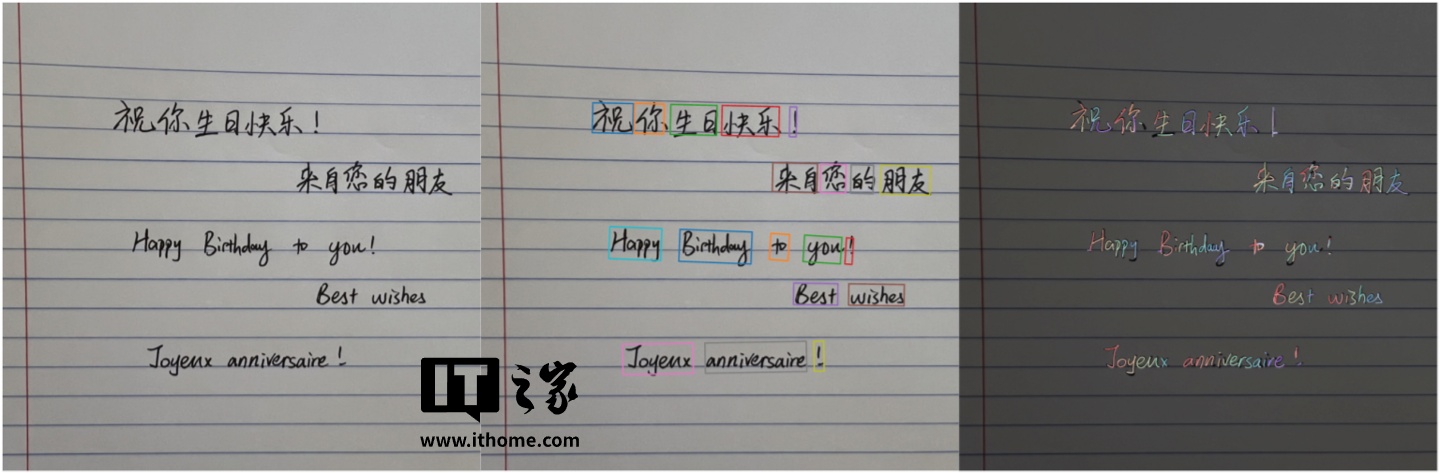 祝你生日快乐！
来自您的朋友
Happy Birthday to you!
Best wishes
Joyeux anniversaire!
祝你生日快乐！
来自您的朋友
Happy Birthday to you!
Best wishes
Joyeux anniversaire!
祝你生日快乐！
来自您的朋友
Happy Birthday to you!
Best wishes
Joyeux anniversaire!
IT之家
www.ithome.com